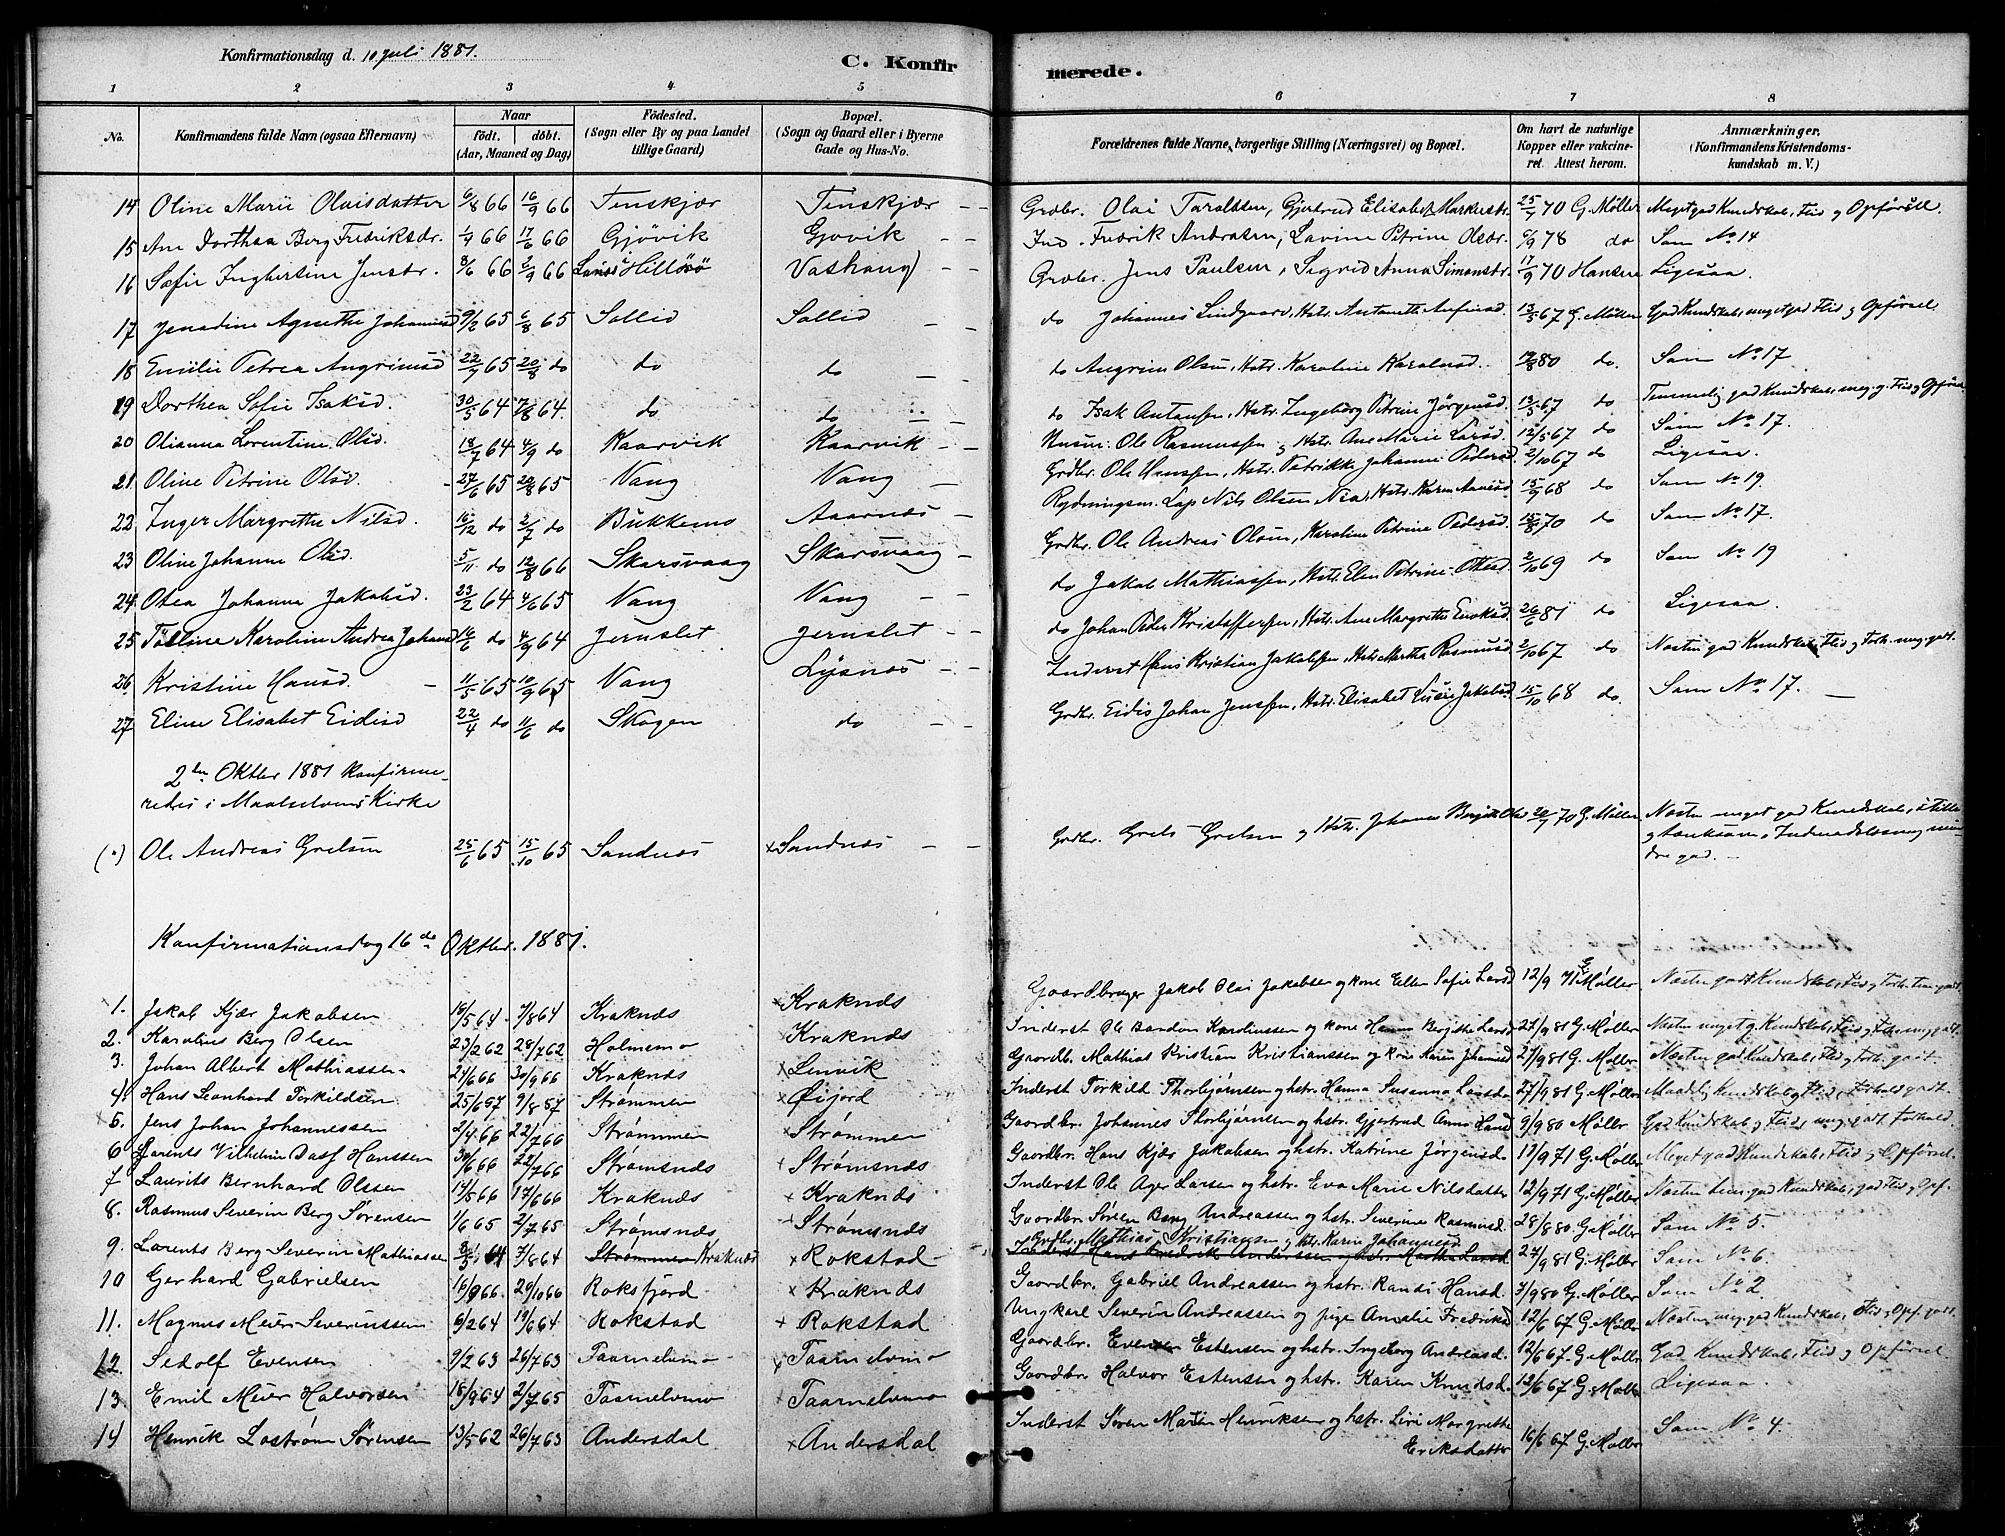 Konfirmationsdag d. 10 Juli 1881.
C. Konfirmerede.
1 2 3 4 5 6 7 8
No. Konfirmandens fulde Navn (ogsaa Efternavn) Naar födt. döbt. (Aar, Maaned og Dag) Födested. (Sogn eller By og paa Landet tillige Gaard) Bopæl. (Sogn og Gaard eller i Byerne Gade og Hus-No. Forældrenes fulde Navne, borgerlige Stilling (Næringsvei) og Bopæl. Om havt de naturlige Kopper eller vakcineret. Attest herom. Anmærkninger. (Konfirmandens Kristendomskundskab m. V.)
14 Oline Marie Olaisdatter 6/8 66 16/9 66 Tenskjær Tenskjær - - Grdbr. Olai Taraldsen, Gjertrud Elisabet Markusdr. 25/7 70 G. Møller Meget god Kundskab, Flid og Opførsel.
15 Ane Dorthea Berg Fredriksdr. 1/4 66 17/6 66 Gjövik Gjovik - - Ind. Fredrik Andreasen, Lavine Petrine Olsdr. 6/9 78 do Som No 14
16 Sofie Ingbertine Jensdr. 8/6 66 2/9 66 Hillösö Vashaug - - Grdbr. Jens Paulsen, Sigrid Anna Simonsdr. 17/9 70 Hansen Ligesaa.
17 Jensdine Agnethe Johannesd 9/2 65 6/8 65 Sollid Sollid - - do Johannes Lindgaard, Hstr. Antonette Anfinsd. 13/5 67 G. Møller God Kundskab, meget god Flid og Opførsel.
18 Emilie Petrea Angrimsd 22/7 65 20/8 do do do - - do Angrim Olsen, Hstr. Karoline Karolusd. 12/8 80 do. Som No 17
19 Dorthea Sofie Isaksd. 30/5 64 7/8 64. do do - - do Isak Antonsen, Hstr. Ingeborg Petrine Jörgensd. 13/5 67 do Temmelig god Kundskab, meg. g. Flid og Opförsel
20 Olianna Lorentine Olsd. 18/7 64 4/9 do Kaarvik Kaarvik - - Husm. Ole Rasmussen og Hstr. Ane Marie Larsd. 12/5 67 do Som No 17.
21 Oline Petrine Olsd. 27/6 65 20/8 65 Vang Vang - Grdbr. Ole Hanssen, Hstr. Petrikke Johanne Pedersd. 2/10 67 do Ligesaa
22 Inger Margrethe Nilsd. 16/12 do 2/7 do Bukkemo Aarnes - Rydningsm. Lap Nils Olsen Nia, Hstr. Karen Annesd. 15/9 68 do Som No 19.
23 Oline Johanne Olsd 5/11 do 12/8 66 Skarsvaag Skarsvaag - Grdbr. Ole Andreas Olsen, Karoline Petrine Pedersd. 15/8 70 do Som No 17.
24 Otea Johanna Jakobsd. 23/2 64 4/6 65 Vang Vang - - do Jakob Mathiassen, Hstr. Elen Petrine Ottesd. 2/10 69 do Som No 19
25 Tolline Karoline Andrea Johansd 16/6 do 4/9 64 Jernslet Jernslet - - do Johan Peder Kristoffersen, Hstr. Ane Margrethe Eriksd. 26/6 81 do Ligesaa.
26 Kristine Hansd. 11/5 65 10/9 65 Vang Lysnes - - Inderst Hans Kristian Jakobsen, Hstr. Martha Rasmusd. 2/10 67 do Næsten god Kundskab, Flid og Forh. meg. godt.
27 Eline Elisabet Eidisd 22/4 do 11/6 do Skogen do - - Grdbr. Eidis Johan Jenssen, Hstr. Elisabet Jakobsd. 15/10 68 do. Som No 17. -
2den Oktbr 1881 konfirmeredes i Maalselvens Kirke
(.) Ole Andreas Grelsen 25/6 65 15/10 65 Sandnes Sandnes - - Grdbr. Grels Grelsen og Hstr. Johanna Olsd 20/7 70 G. Møller Næsten meget god Kundskab, stille og tænksom, Indenadslæsning mindre god. -
Konfirmationsdag 16de Oktbr. 1881.
1. Jakob Kjær Jakobsen 16/5 64 7/8 64 Kraknæs Kraknæs Gaardbruger Jakob Olai Jakobsen og kone Ellen Sofie Larsd 12/9 71 G. Møller Næsten godt Kundskab, Flid og Forh. tem. godt.
2. Karolius Berg Olsen 23/2 62 28/7 62 Holmemo Kraknæs Inderst Ole Bendon Karoliussen og kone Hanna Bergitte Larsd 27/9 81 G. Møller Næsten meget g. Kundskab, Flid og Forh. meg. godt.
3. Johan Albert Mathiassen 21/6 66 30/9 66 Kraknæs Lenvik Gaardbr. Mathias Kristian Kristianssen og kone Karen Johannesd 27/9 81 G. Møller Næsten god Kundskab, Flid og Forh. godt.
4. Hans Leonhard Torkildsen 25/6 67 9/8 67 Strømmen Øijord Inderst Torkild Thorbjørnsen og hstr. Hanna Susanna Larsdr 27/9 81 G. Møller Maadelig Kundskab og Flid, Forhold godt.
5. Jens Johan Johannessen 2/4 66 22/7 66 Strømmen Strømmen Gaardbr. Johannes Thorbjørnsen og hstr. Gjertrud Anna Larsd 9/9 80 Møller God Kundskab og Flid, meg. godt Forhold.
6 Lorents Vilhelm Dass Hanssen 30/6 66 22/7 66 Strømsnæs Strømsnæs Gaardbr. Hans Kjær Jakobsen og hstr. Katrine Jørgensd. 12/9 71 G. Møller Meget god Kundskab, Flid og Opførsel.
7 Laurits Bernhard Olssen 14/5 66 17/6 66 Kraknæs Kraknæs Inderst Ole Ager Larsen og hstr. Eva Marie Nilsdatter 12/9 71 G. Møller Næsten god Kundskab, god Flid og Opf.
8. Rasmus Severin Berg Sørensen 1/6 65 2/7 65 Strømsnæs Strømsnæs Gaardbr Søren Berg Andreassen og hstr. Severine Rasmusd. 28/8 80 G. Møller Som No 5.
9. Lorents Berg Severin Mathiassen 8/5 64 7/8 64 Strømmen Kraknæs Rokstad Grdbr. Mathias Kristiansen og hstr. Karen Johannesd Inderst Hans Fredrik Anderssen og hstr. Marthe Larsd 27/9 81 G. Møller Som No 6.
10 Gerhard Gabrielsen 16/9 66. 20/10 66 Roksfjord Kraknæs Gaardbr. Gabriel Andreassen og hstr. Randi Hansd. 3/9 80 G. Møller Som No 2.
11. Magnus Meier Severinssen 6/2 64 19/6 64 Rokstad Rokstad Ungkarl Severin Andreassen og pige Amalie Fredriksd 12/6 67 G. Møller Næsten meg. god Kundskab, Flid og Opf. godt.
12 Sedolf Evensen 9/2 63 26/7 63 Taarnelvmo Taarnelvmo Gaardbr. Even Estensen og hstr. Ingeborg Andreasd. 12/6 67 G. Møller God Kundskab, Flid og Opførsel
13. Emil Meier Halvorsen 18/9 64 2/7 65 Taarnelvmo Taarnelvmo Gaardbr. Halvor Estensen og hstr. Karen Knudsd. 12/6 67 G. Møller Ligesaa.
14 Henrik Lostrøm Sørensen 13/5 62 26/7 63 Andersdal Andersdal Inderst Søren Martin Henriksen og hstr. Liri Margrethe Eriksdatter 16/6 67 G. Møller Som No 4.